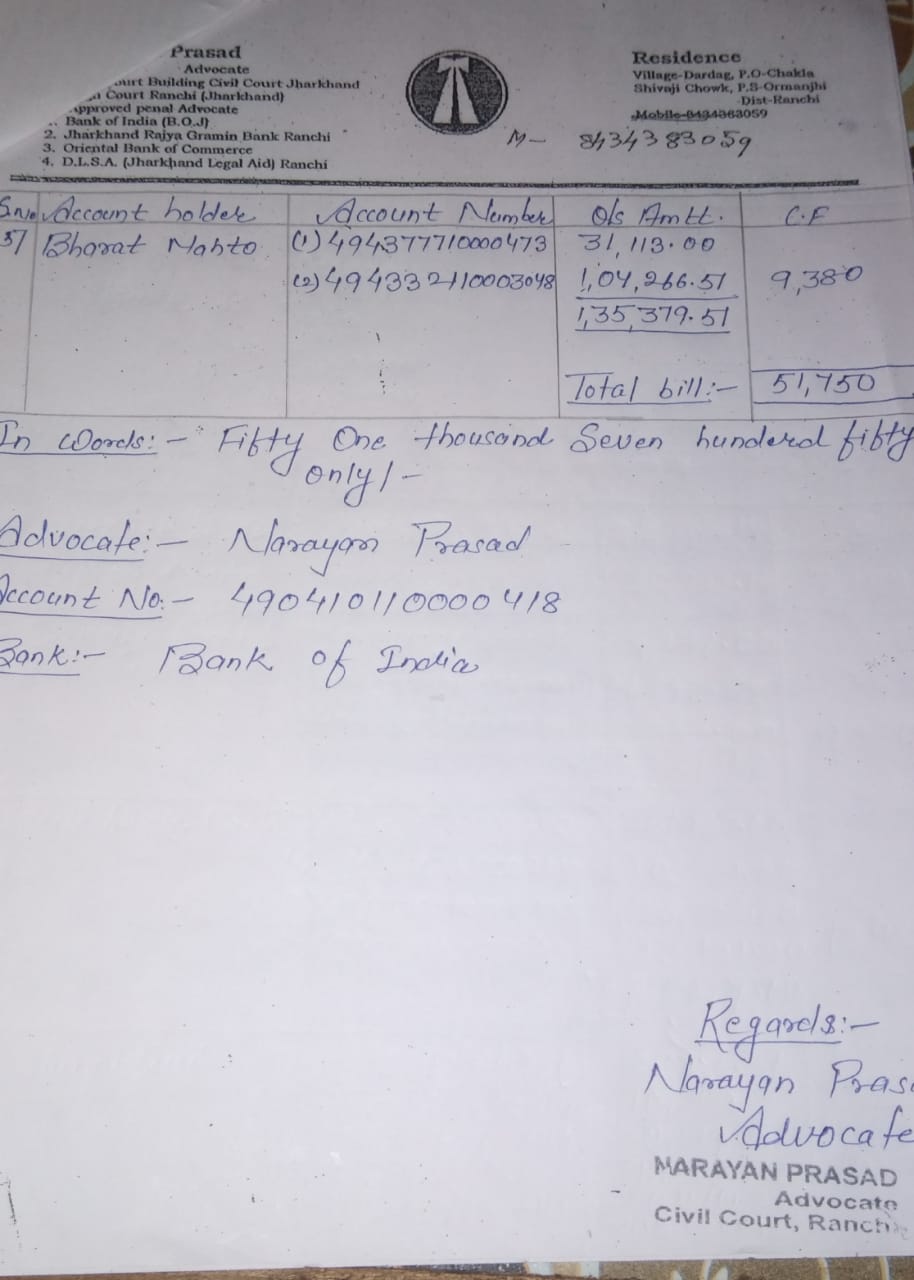 Prasad
Advocate
ourt Building Civil Court Jharkhand
Court Ranchi (Jharkhand)
Approved penal Advocate
1. Bank of India (B.O.I)
2. Jharkhand Rajya Gramin Bank Ranchi
3. Oriental Bank of Commerce
4. D.L.S.A. (Jharkhand Legal Aid) Ranchi
Residence
Village-Dardag, P.O-Chakla
Shivaji Chowk, P.S-Ormanjhi
Dist-Ranchi
M- 8434383059
S.No Account holder Account Number O/s Amtt. C.F
5) Bharat Mahto (1) 494377710000473 31,113.00
(2) 494332110003048 1,04,266.51 9,380
1,35,379.51
Total bill:- 51,750
In Words:- Fifty One thousand Seven hunderd fifty
only/-
Advocate:- Narayan Prasad
Account No:- 490410110000418
Bank:- Bank of India
Regards:-
Narayan Pras
Advocate
NARAYAN PRASAD
Advocate
Civil Court, Ranchi